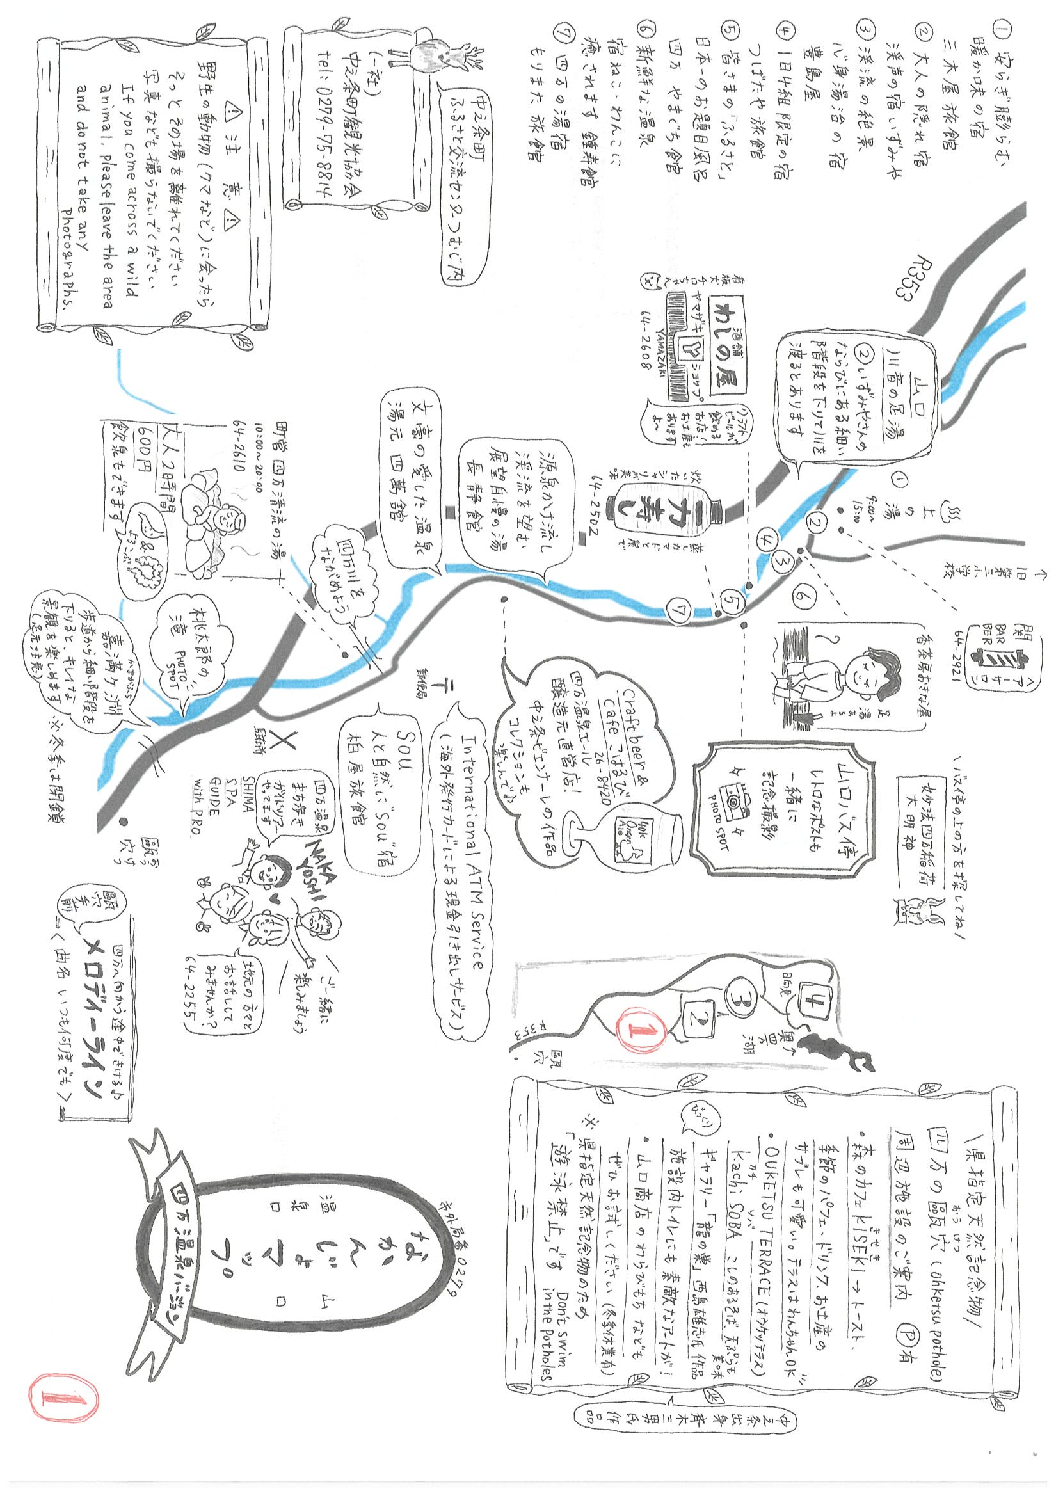 ① 安らぎ膨らむ
暖か味の宿
三木屋旅館
② 大人の隠れ宿
渓声の宿いずみや
③ 渓流の絶景
心身湯治の宿
豊島屋
④ 1日4組限定の宿
つばたや旅館
⑤ 皆さまの「ふるさと」
日本一のお題目風呂
四万 やまぐち館
⑥ 新鮮な温泉
宿ねこ・わんこに
癒されます 鍾寿館
⑦ 四万の湯宿
もりまた旅館
中之条町
ふるさと交流センターつむじ内
(一社)
中之条町観光協会
tel: 0279-75-8814
⚠ 注意 ⚠
野生の動物(クマなど)に会ったら
そっとその場を離れてください
写真なども撮らないでください
If you come across a wild
animal, please leave the area
and do not take any
photographs.
R353
山口
川音の足湯
②いずみやさんの
ならびにある細い
階段を下りて川を
渡るとあります
看板犬チロちゃん
酒舗
わしの屋
ヤマザキ
Y
ショップ
YAMAZAKI
64-2608
クラフト
ビールが
飲める
お店!
お土産も
あります
よ〜
一力寿し
64-2502
源泉かけ流し
渓流を望む
展望自慢の湯
長静館
文豪の愛した温泉
湯元 四萬館
四万川を
ながめよう
町営 四万清流の湯
10:00〜20:00
64-2610
大人2時間
600円
飲泉もできます
桃太郎の
滝 PHOTO
SPOT
嘉満ヶ淵
歩道から細い階段を
下りるとキレイな
景観を楽しめます
(足元注意)
※冬季は閉鎖
上の湯
9:00〜
15:00
①
②
③
④
⑤
⑥
⑦
↑
旧第三小学校
関
BAR
BER
ヘアーサロン
64-2921
\バス停の上の方を探してね/
妙法四万稲荷
大明神
山口バス停
レトロなポストも
一緒に
記念撮影
PHOTO SPOT
Craft beer &
Cafe こはるび
26-8420
四万温泉エール
醸造元直営店!
中之条ビエンナーレの作品
コレクションも
楽しんで♪
郵便局
〒
International ATM Service
(海外発行カードによる現金引き出しサービス)
SOU
人と自然に"SOU"宿
柏屋旅館
駐在所
四万温泉
まち歩き
ガイドツアー
やってます
SHIMA
SPA
GUIDE
with PRO
NAKA
YOSHI
ご一緒に
楽しみましょう
地元の方々と
お話して
みませんか?
64-2255
甌穴
甌穴手前
四万へ向かう途中できける♪
メロディーライン
〈曲名 いつも何度でも〉
4
3
2
1
日向見
奥四万湖
R353
甌穴
\県指定天然記念物/
四万の甌穴 (ohketsu pothole)
おうけつ
周辺施設のご案内 Ⓟ有
・森のカフェKISEKI→トースト、
きせき
季節のパフェ・ドリンク、お土産の
サブレも可愛い。テラスはわんちゃんOK
・OUKETSU TERRACE (オウケツテラス)
Kachi SOBA こしのあるそば、天ぷらも美味
カチ ソバ
ギャラリー「龍の巣」西島雄志氏作品
施設内トイレにも素敵なアートが!
・山口商店のわらびもちなども
ぜひお試しください(冬季休業有)
※ 県指定天然記念物のため
「遊泳禁止」です Don't swim
in the potholes
びっくり
中之条出身 齊木三男氏作品
市外局番0279
温泉口
なかんじょ
マップ
山口
四万温泉バージョン
1